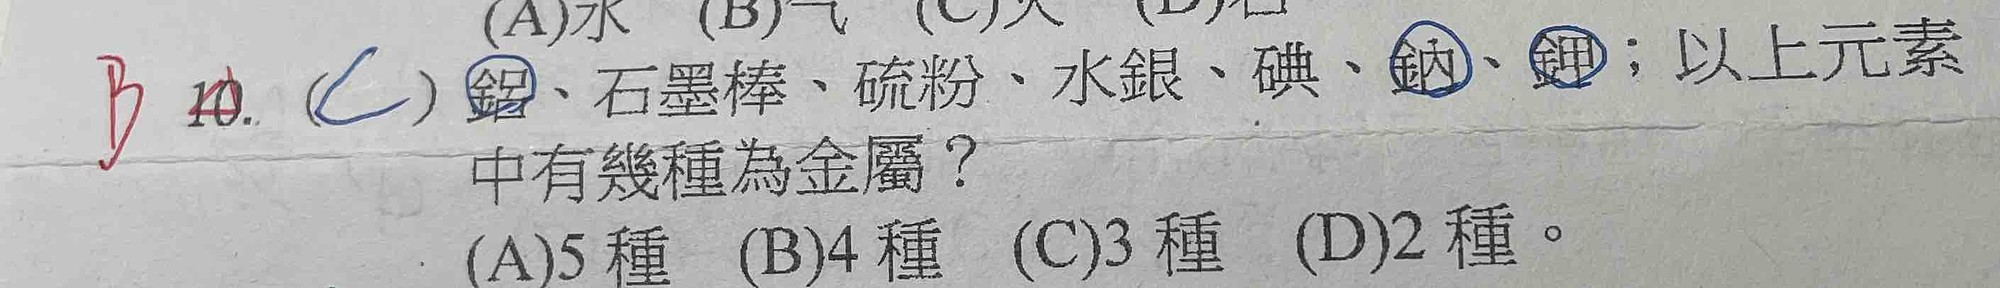 (A)水 (B)气 (C)火 (D)石
B 10. (C) 鋁、石墨棒、硫粉、水銀、碘、鈉、鉀；以上元素
中有幾種為金屬？
(A)5 種 (B)4 種 (C)3 種 (D)2 種。